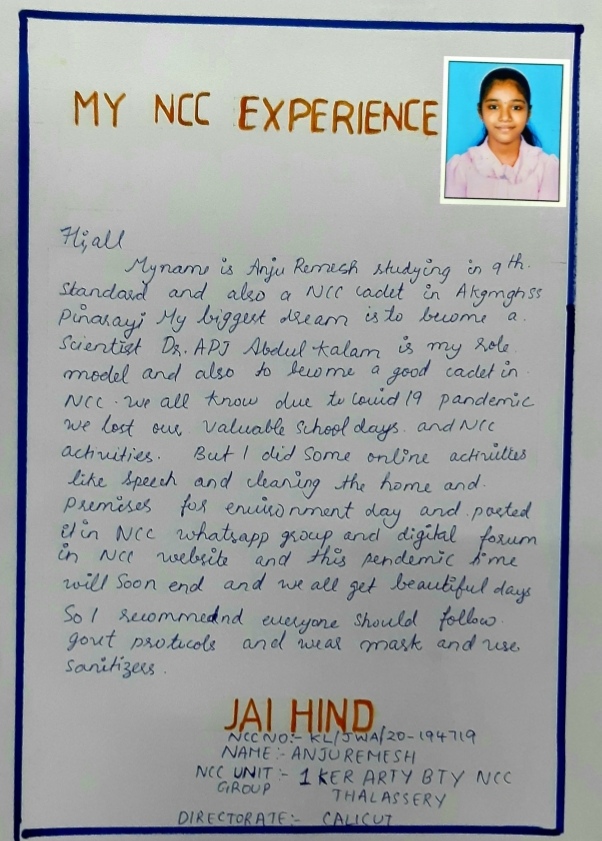 MY NCC EXPERIENCE
Hi, all
My name is Anju Remesh studying in 9th
Standard and also a NCC cadet in Akgmghss
Pinarayi My biggest dream is to become a
Scientist Dr. APJ Abdul Kalam is my role
model and also to become a good cadet in
NCC. we all know due to covid 19 pandemic
we lost our valuable school days and NCC
activities. But I did some online activities
like speech and cleaning the home and
premises for environment day and posted
it in NCC whatsapp group and digital forum
in NCC website and this pendemic time
will soon end and we all get beautiful days
So I recommednd everyone should follow
govt protocols and wear mask and use
sanitizers.
JAI HIND
NCC NO:- KL/JWA/20-194719
NAME:- ANJU REMESH
NCC UNIT:- 1 KER ARTY BTY NCC
GROUP THALASSERY
DIRECTORATE:- CALICUT